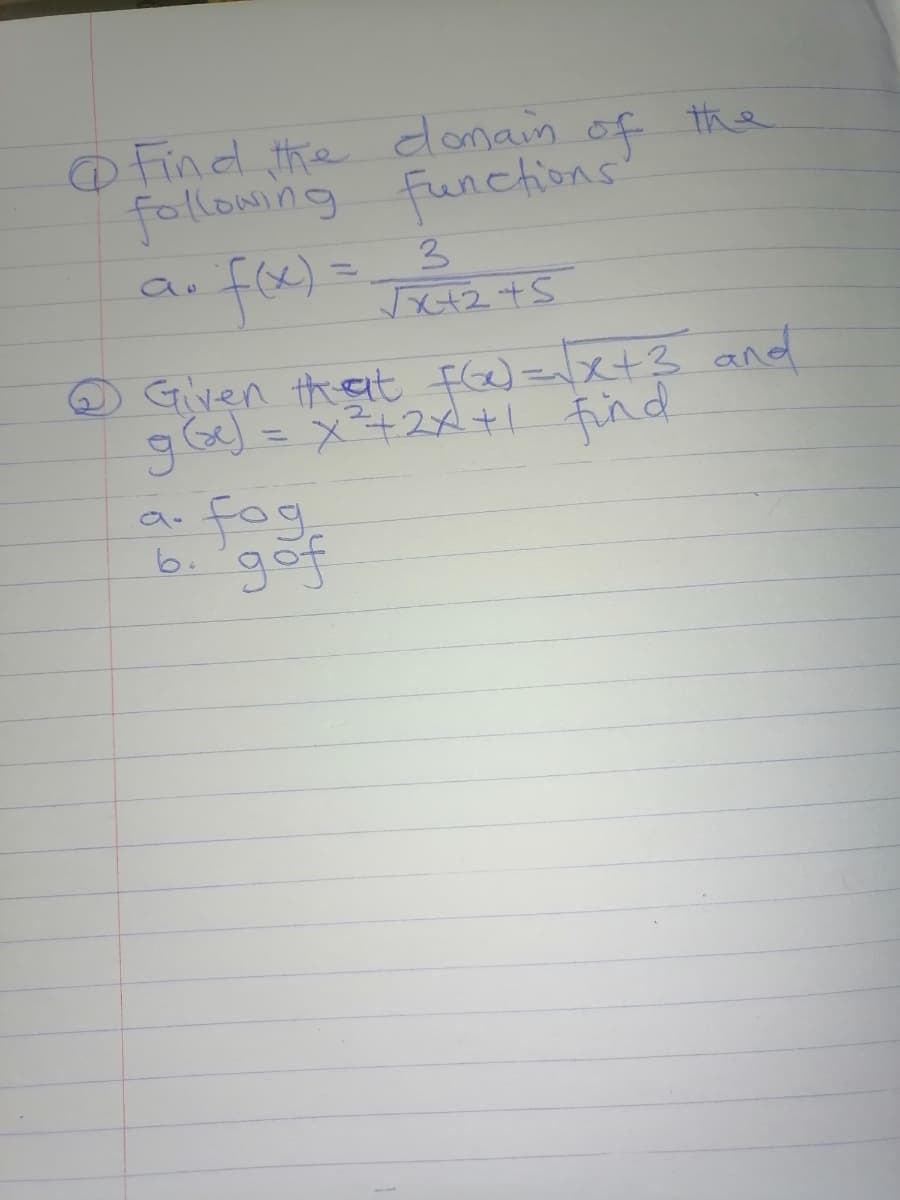 ① Find the domain of the
following functions
a. f(x) = 3
√x+2 +5
② Given that f(x) = √x+3 and
g(x) = x²+2x+1 find
a. fog
b. gof